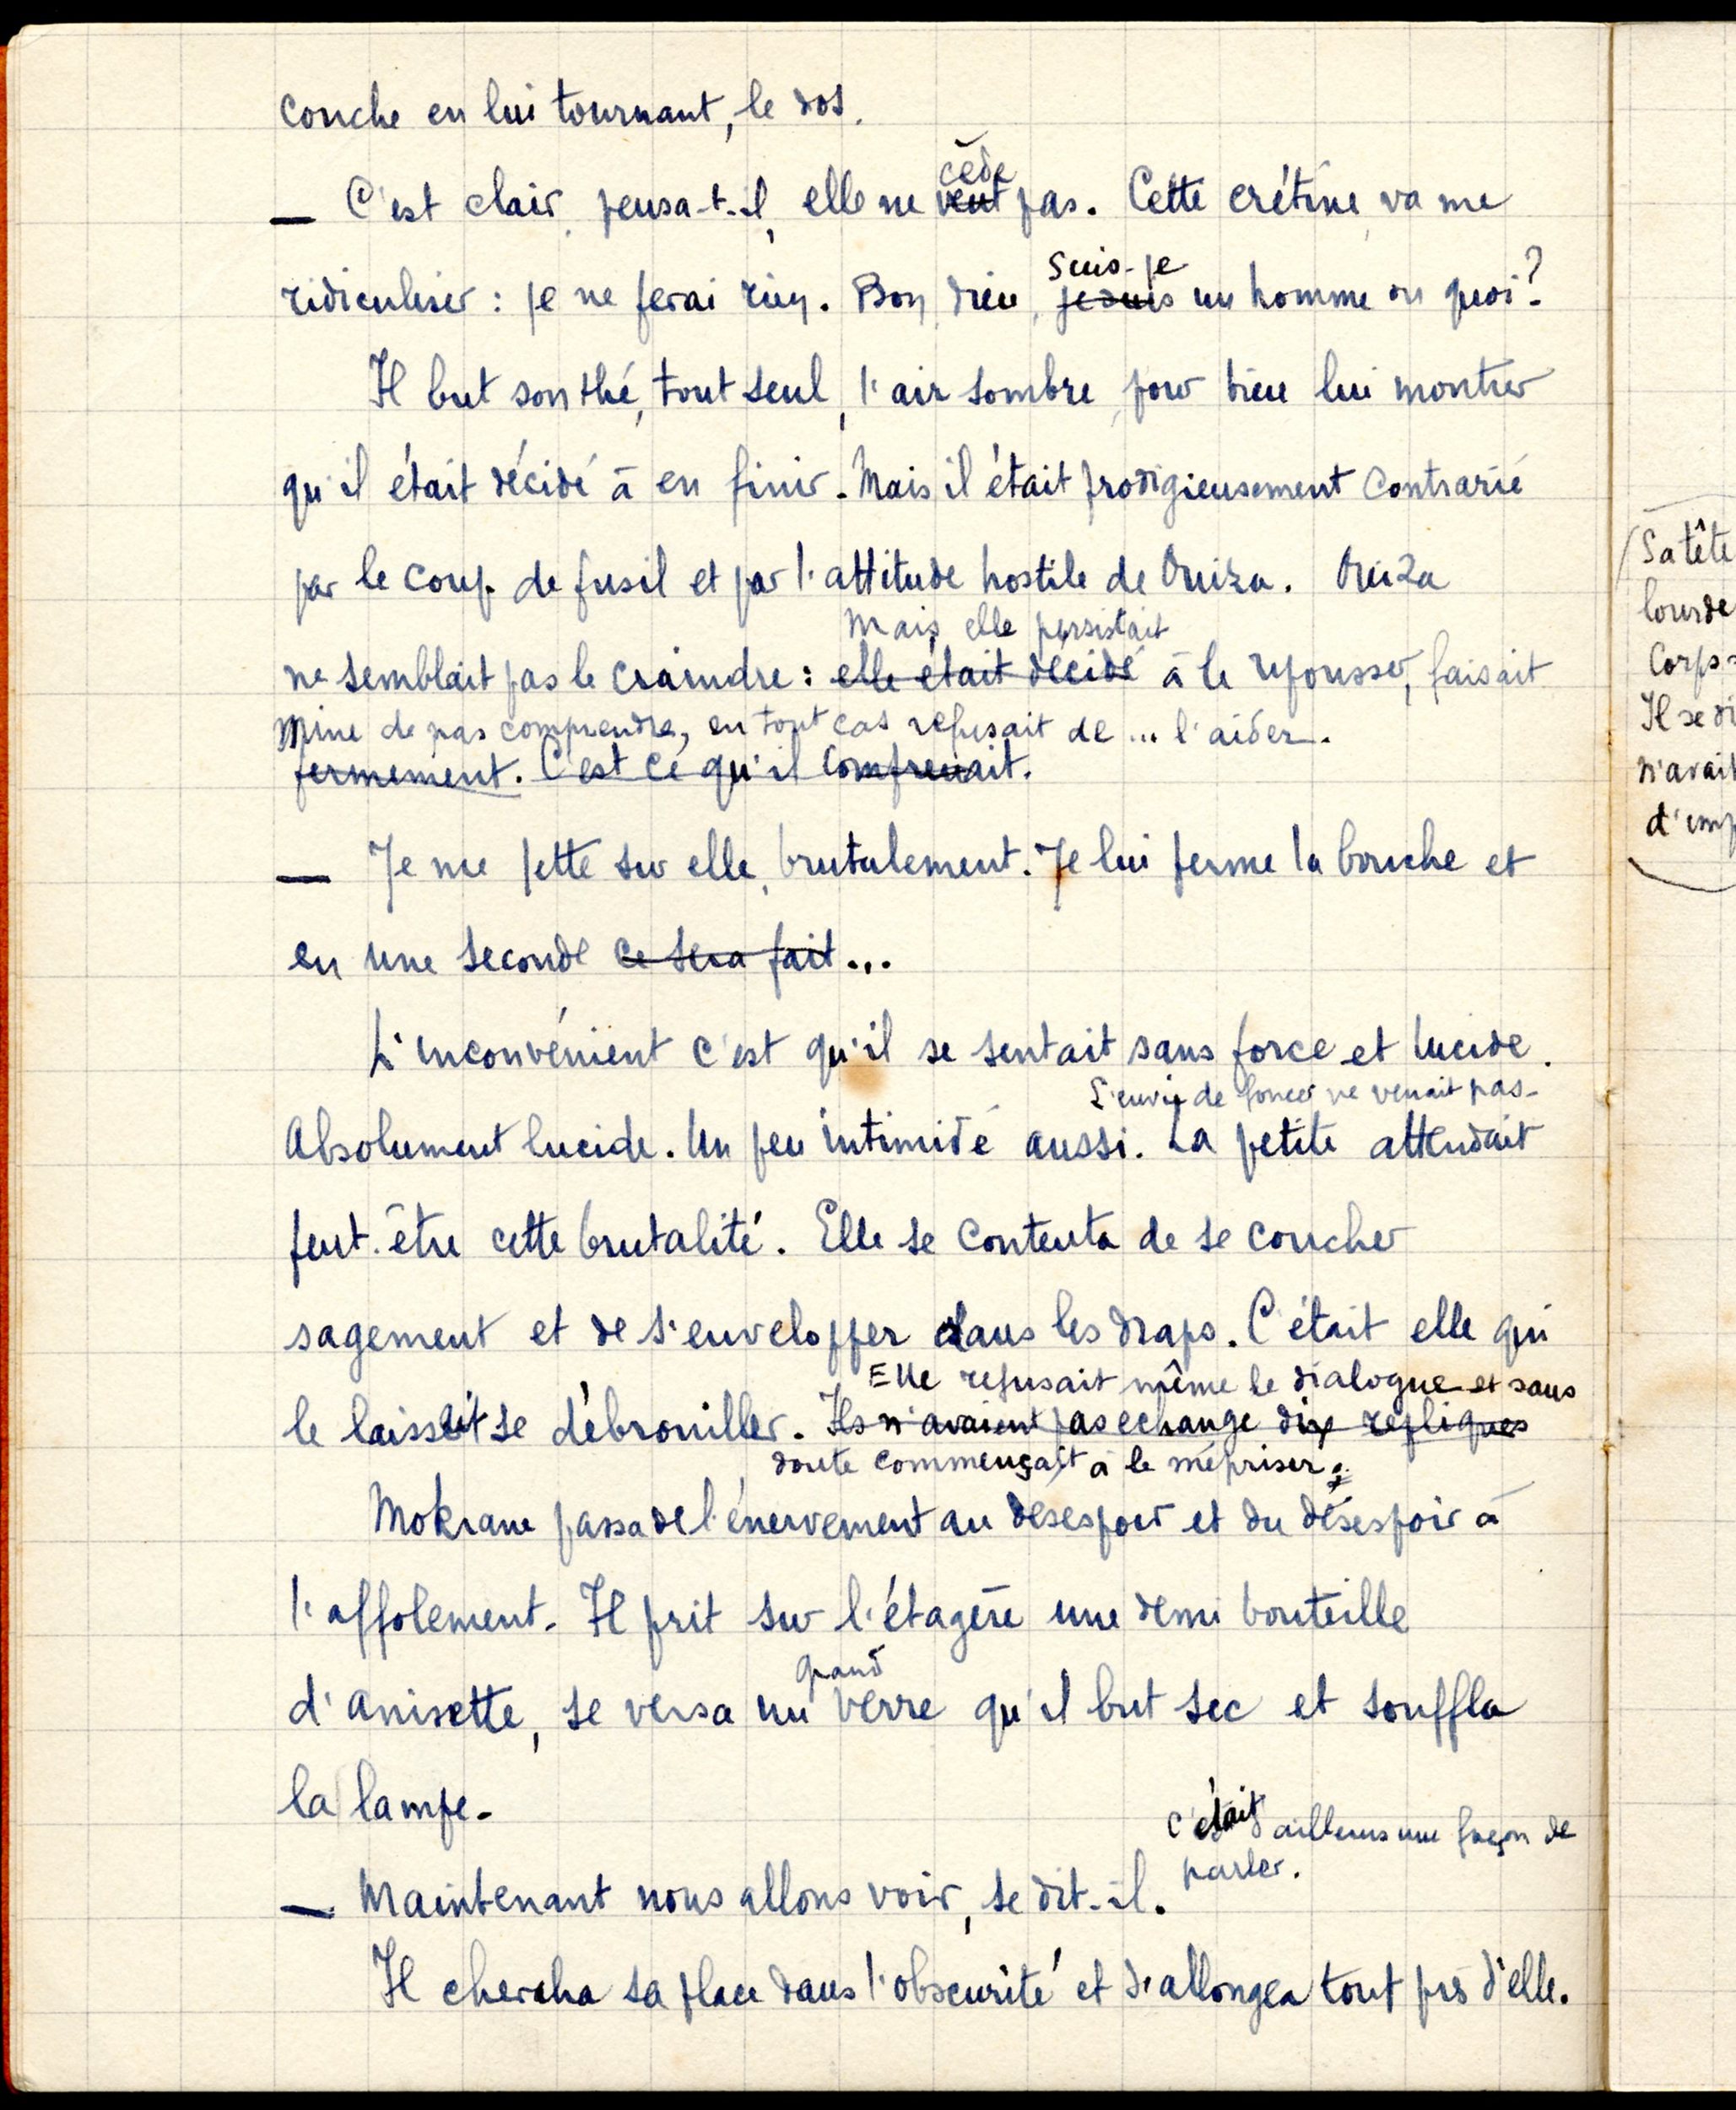 couche en lui tournant, le dos.
cède
— C'est clair, pensa-t-il, elle ne veut pas. Cette crétine va me
suis-je
ridiculiser : je ne ferai rien. Bon dieu, je suis un homme ou quoi ?
Il but son thé, tout seul, l'air sombre, pour bien lui montrer
qu'il était décidé à en finir. Mais il était prodigieusement contrarié
par le coup de fusil et par l'attitude hostile de Ouiza. Ouiza
mais elle persistait
ne semblait pas le craindre : elle était décidé à le repousser, faisait
mine de pas comprendre, en tout cas refusait de ... l'aider.
fermement. C'est ce qu'il comprenait.
— Je me jette sur elle, brutalement. Je lui ferme la bouche et
en une seconde ce sera fait...
L'inconvénient c'est qu'il se sentait sans force et lucide.
L'envie de foncer ne venait pas.
Absolument lucide. Un peu intimidé aussi. La petite attendait
peut-être cette brutalité. Elle se contenta de se coucher
sagement et de s'envelopper dans les draps. C'était elle qui
Elle refusait même le dialogue et sans
le laissait se débrouiller. Ils n'avaient pas echange dix repliques
doute commençait à le mépriser.
Mokrane passa de l'énervement au desespoir et du désespoir à
l'affolement. Il prit sur l'étagère une demi bouteille
grand
d'anisette, se versa un verre qu'il but sec et souffla
la lampe.
c'était ailleurs une façon de
parler.
— Maintenant nous allons voir, se dit-il.
Il chercha sa place dans l'obscurité et s'allongea tout près d'elle.
Sa tête
lourde
corps
Il se di
n'avait
d'imp